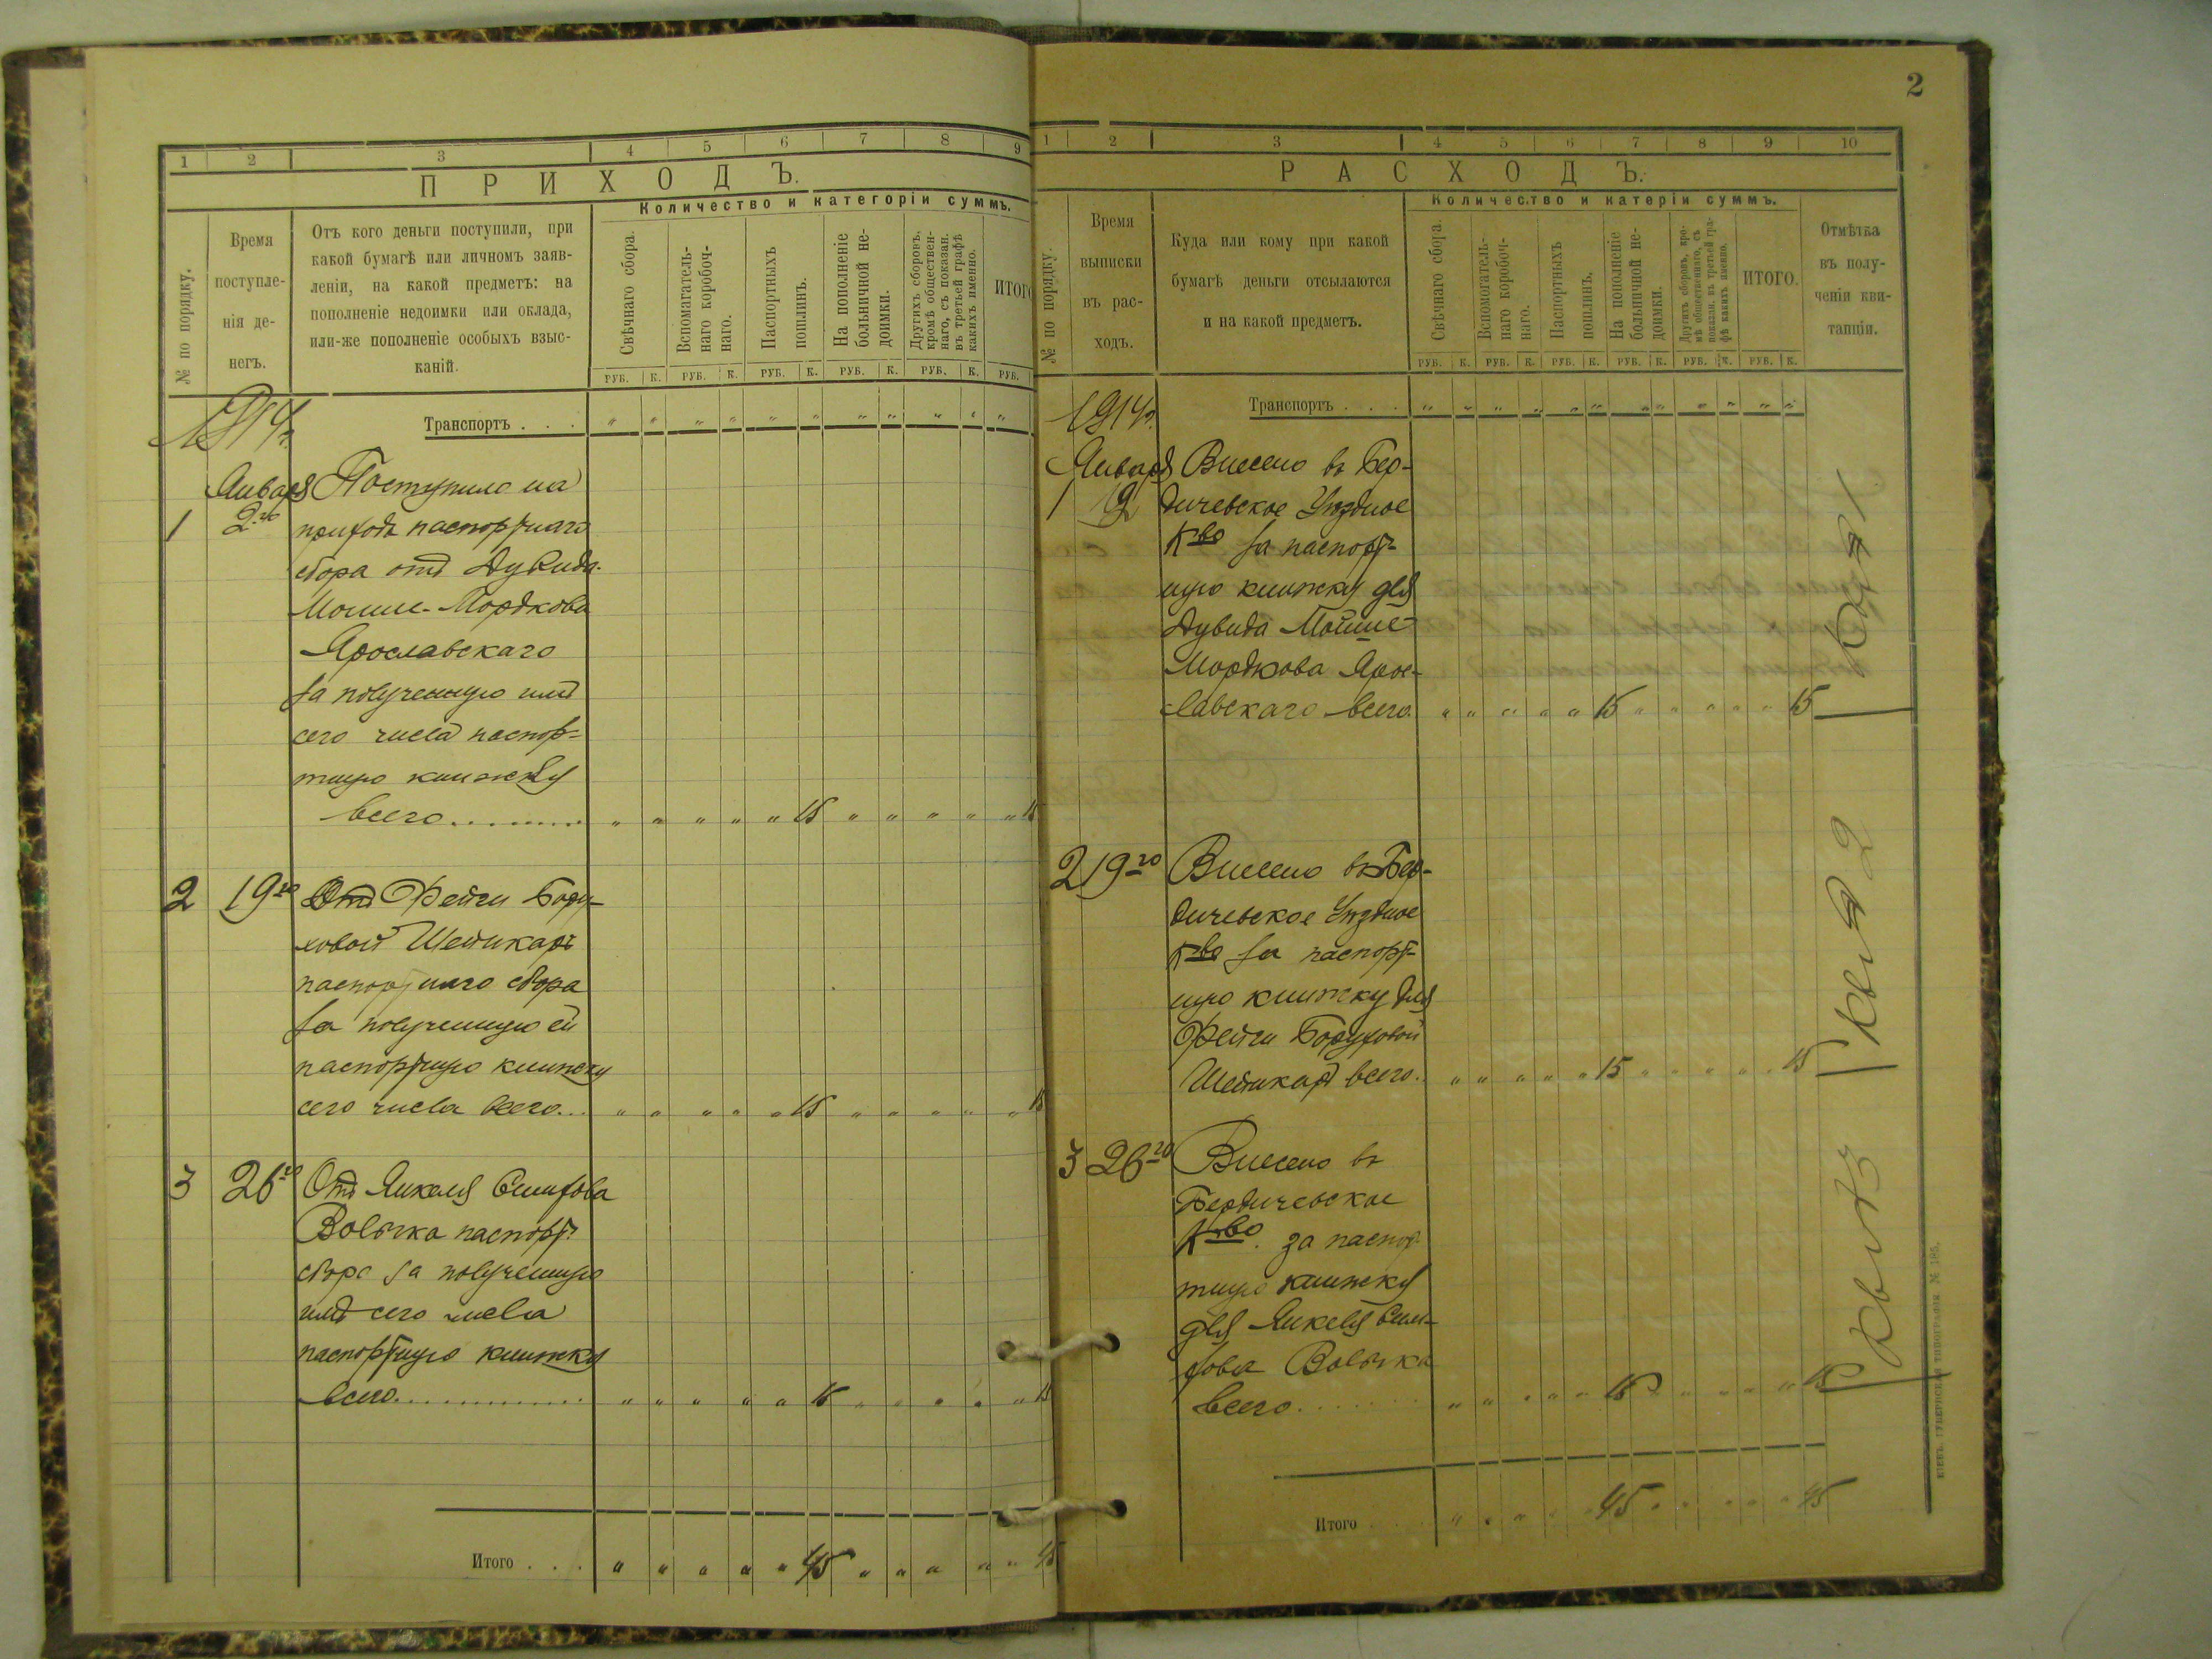 1 2 3 4 5 6 7 8 9
ПРИХОДЪ.
Количество и категоріи суммъ.
№ по порядку.
Время
поступле-
нія де-
негъ.
Отъ кого деньги поступили, при
какой бумагѣ или личномъ заяв-
леніи, на какой предметъ: на
пополненіе недоимки или оклада,
или-же пополненіе особыхъ взыс-
каній.
Свѣчнаго сбора.
Вспомагатель-
наго коробоч-
наго.
Паспортныхъ
пошлинъ.
На пополненіе
больничной не-
доимки.
Другихъ сборовъ,
кромѣ обществен-
наго, съ показан.
въ третьей графѣ
какихъ именно.
ИТОГО
РУБ. К. РУБ. К. РУБ. К. РУБ. К. РУБ. К. РУБ.
1914 г.
Транспортъ . . . " " " " " " " " " " "
Января Поступило на
1 2го приходъ паспортнаго
сбора отъ Дувида
Мошке-Мордкова
Ярославскаго
за полученную имъ
сего числа паспор=
тную книжку
всего.......... " " " " " 15 " " " " " 15
2 19го Отъ Фейги Бору-
ховой Шейнкаръ
паспортнаго сбора
за полученную ей
паспортную книжку
сего числа всего... " " " " " 15 " " " " " 15
3 26го Отъ Янкеля Симхова
Вольчка паспорт.
сбора за полученную
имъ сего числа
паспортную книжку
всего............... " " " " " 15 " " " " " 15
Итого . . . " " " " " 45 " " " " " 45
2
1 2 3 4 5 6 7 8 9 10
РАСХОДЪ.
Количество и катеріи суммъ.
№ по порядку.
Время
выписки
въ рас-
ходъ.
Куда или кому при какой
бумагѣ деньги отсылаются
и на какой предметъ.
Свѣчнаго сбора.
Вспомогатель-
наго коробоч-
наго.
Паспортныхъ
пошлинъ.
На пополненіе
больничной не-
доимки.
Другихъ сборовъ, кро-
мѣ общественнаго, съ
показан. въ третьей гра-
фѣ какихъ именно.
ИТОГО.
Отмѣтка
въ полу-
ченіи кви-
танціи.
РУБ. К. РУБ. К. РУБ. К. РУБ. К. РУБ. К. РУБ. К.
1914 г.
Транспортъ . . . " " " " " " " " " " " "
Января Внесено въ Бер-
1 2 дичевское Уѣздное
К-во за паспорт-
ную книжку для
Дувида Мошке-
Мордкова Ярос-
лавскаго всего. " " " " " 15 " " " " " 15
Квит 1
2 19го Внесено въ Бер-
дичевское Уѣздное
К-во за паспорт-
ную книжку для
Фейги Боруховой
Шейнкаръ всего. " " " " " 15 " " " " " 15
Квит 2
3 26го Внесено въ
Бердичевское
К-во. за паспор
тную книжку
для Янкеля Сим-
хова Вольчка
всего....... " " " " " 15 " " " " " 15
Квит 3
Итого . . . " " " " " 45 " " " " " 45
КІЕВЪ. ГУБЕРНСКАЯ ТИПОГРАФІЯ № 185.